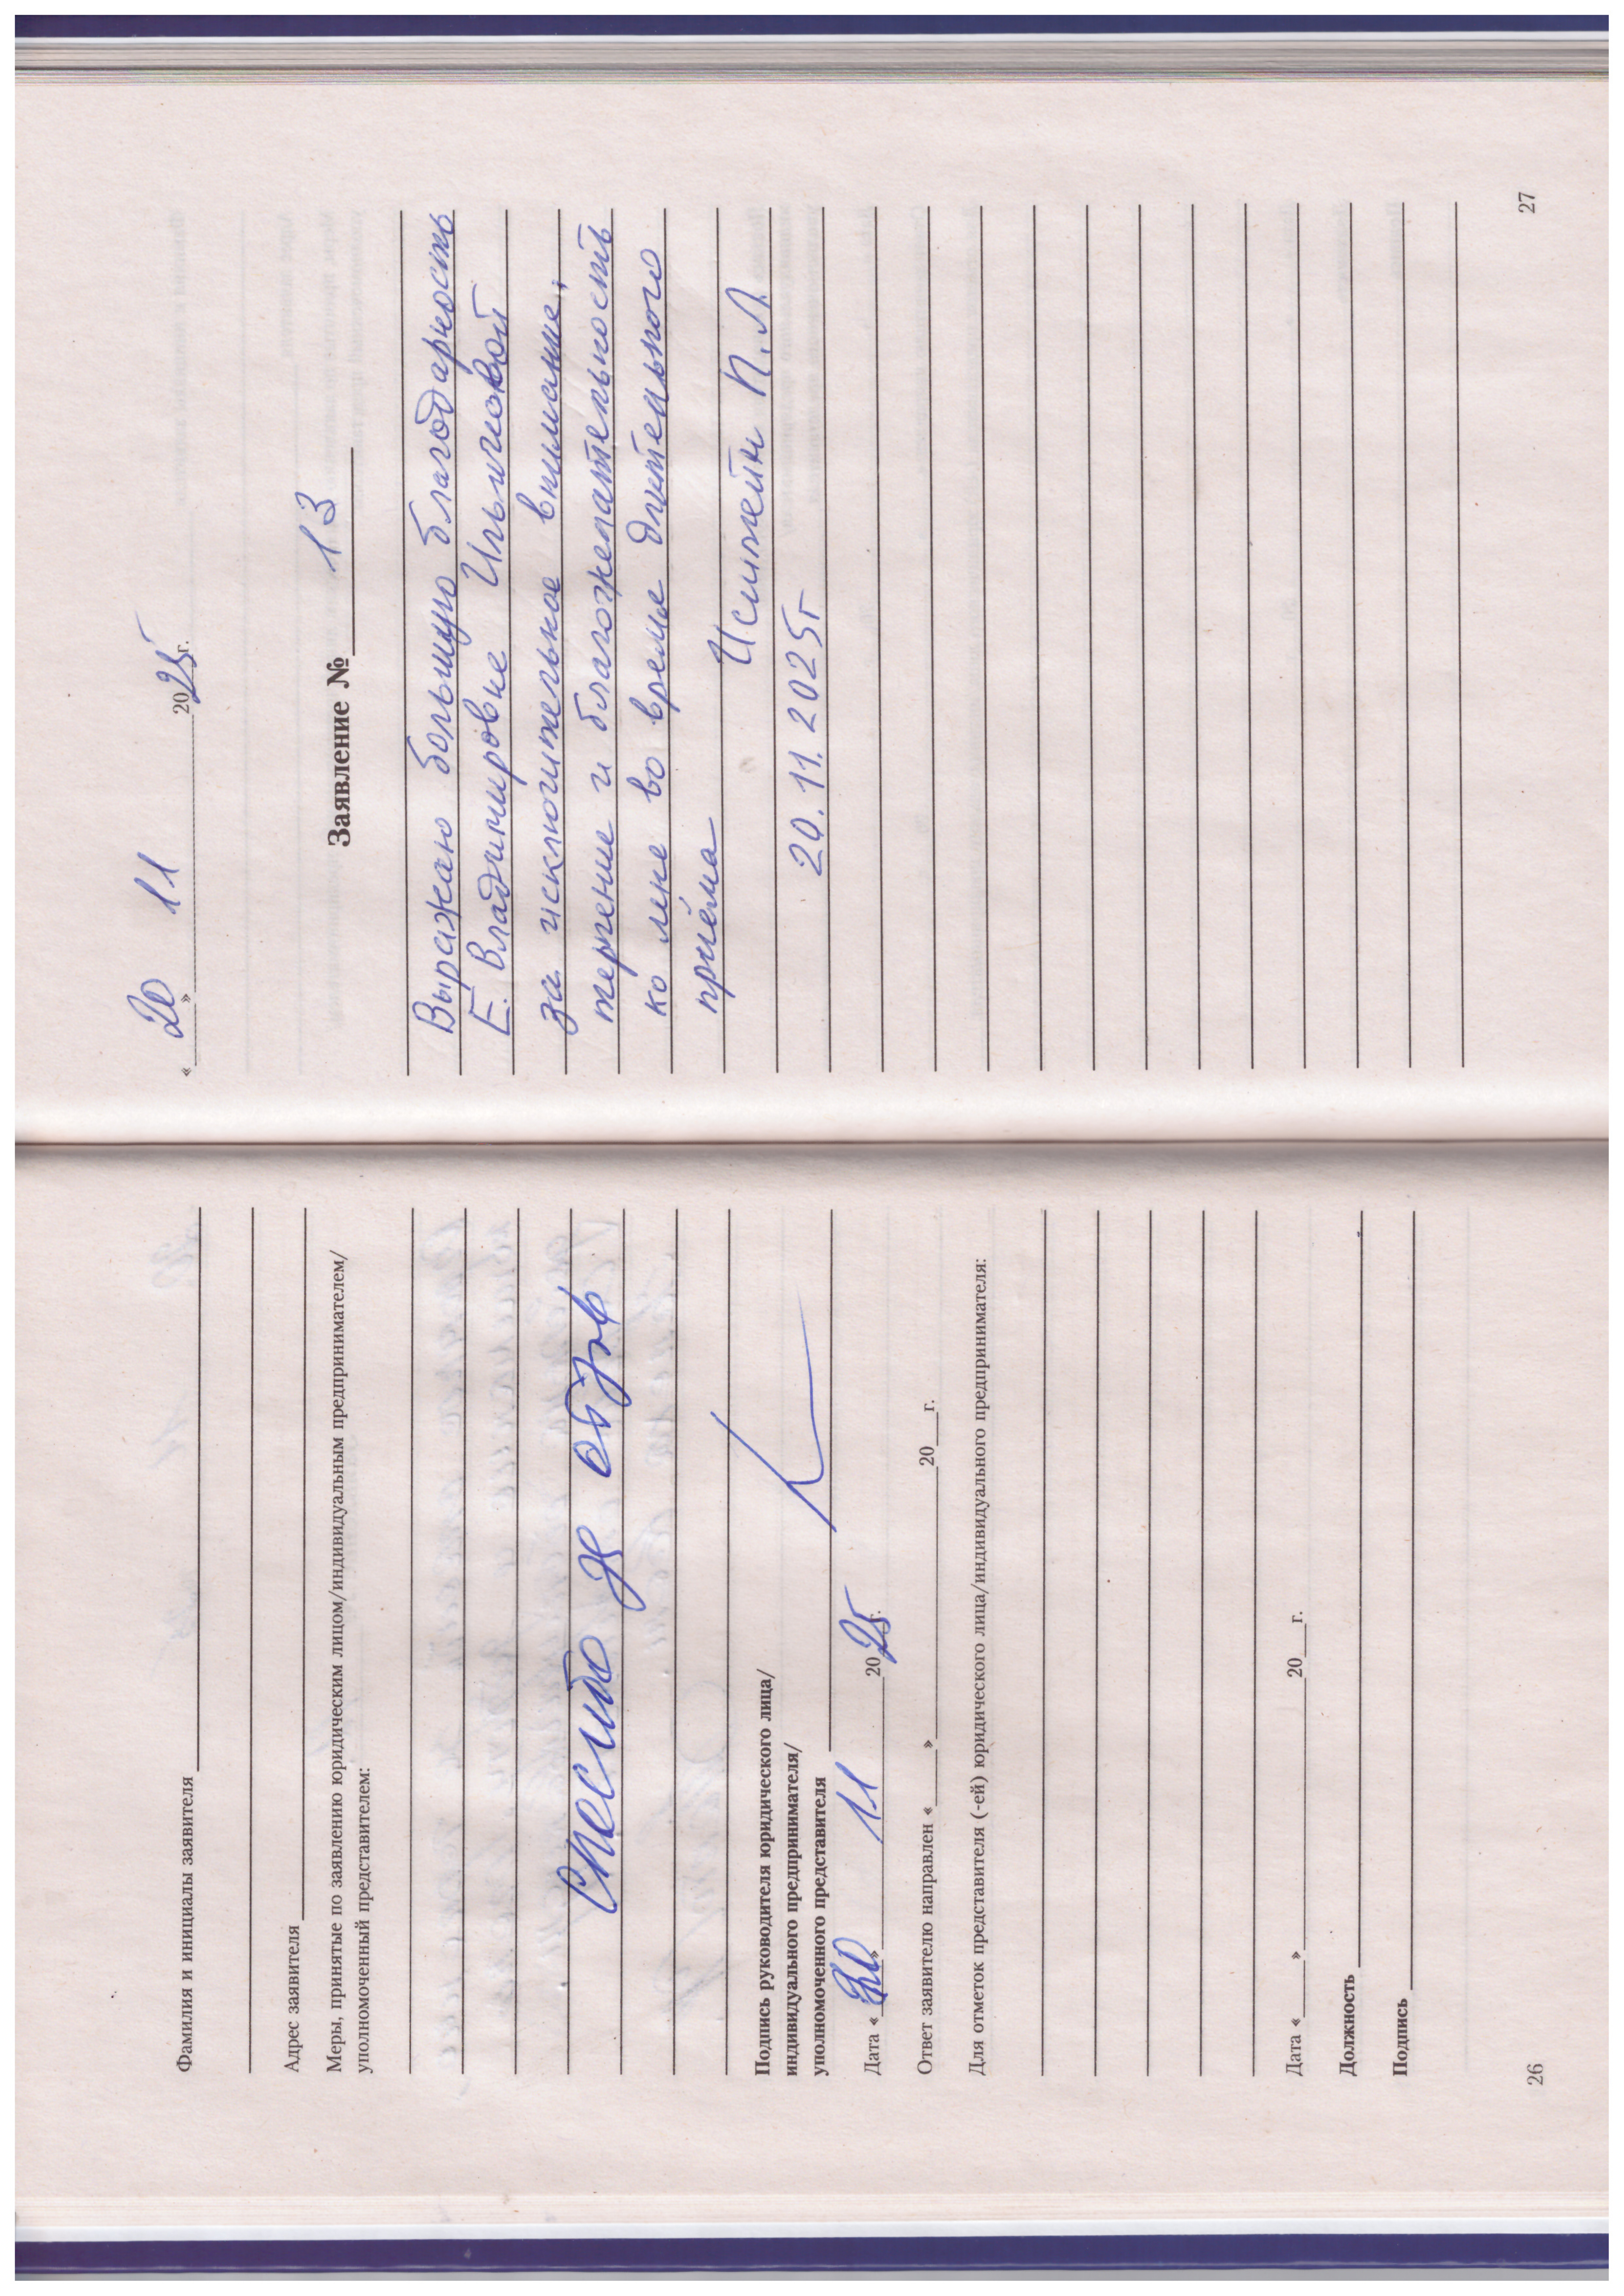 Фамилия и инициалы заявителя
Адрес заявителя
Меры, принятые по заявлению юридическим лицом/индивидуальным предпринимателем/
уполномоченный представителем:
Спасибо за отзыв
Подпись руководителя юридического лица/
индивидуального предпринимателя/
уполномоченного представителя
Дата «20» 11 2025г.
Ответ заявителю направлен «____»____20__г.
Для отметок представителя (-ей) юридического лица/индивидуального предпринимателя:
Дата «____»____20__г.
Должность
Подпись
26
«20» 11 2025г.
Заявление № 13
Выражаю большую благодарность
Е. Владимировне Ильичовой
за исключительное внимание,
терпение и благожелательность
ко мне во время длительного
приёма
П.Л.
20.11.2025г
27